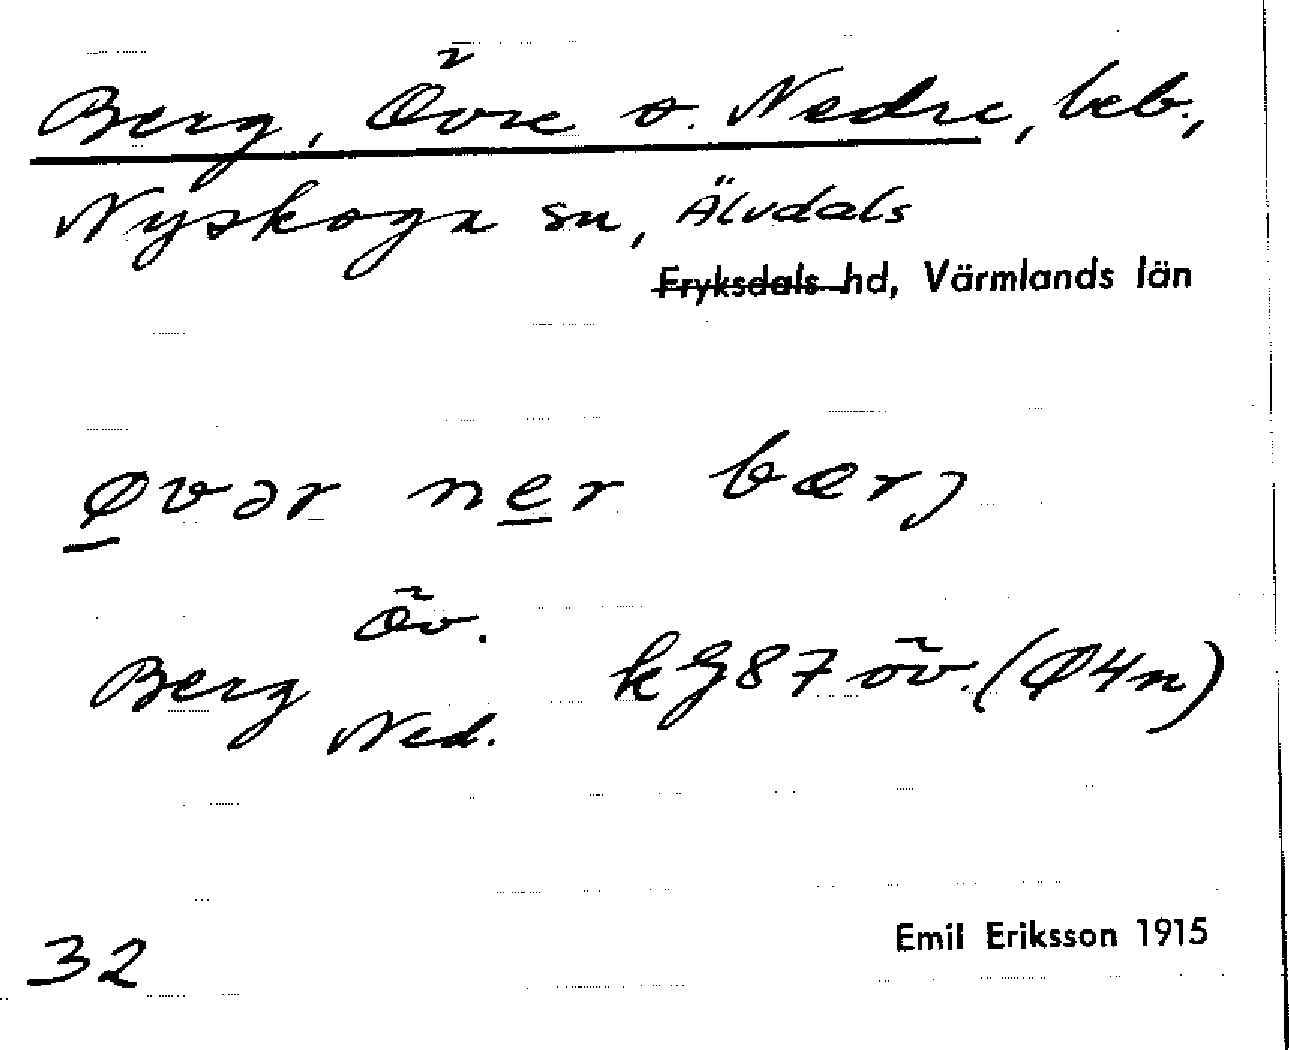 Berg, Övre o. Nedre, beb.,
Nyskoga sn, Älvdals
Fryksdals hd, Värmlands län
øvər ner bærj
Öv.
Berg kG87 öv. (Ø4n)
Ned.
32
Emil Eriksson 1915